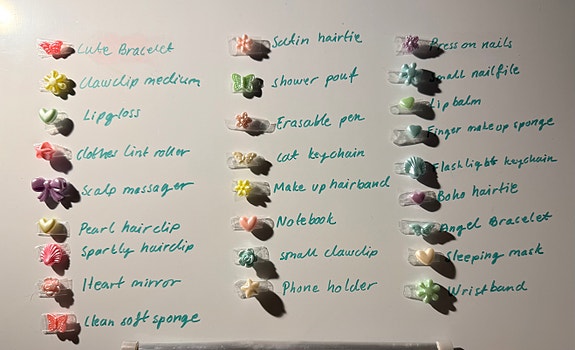 Cute Bracelet
Clawclip medium
Lipgloss
Clothes lint roller
Scalp massager
Pearl hairclip
Sparkly hairclip
Heart mirror
Clean soft sponge
Satin hairtie
shower pouf
Erasable pen
Cat keychain
Make up hairband
Notebook
small clawclip
Phone holder
Press on nails
Small nailfile
Lip balm
Finger make up sponge
Flashlight keychain
Boho hairtie
Angel Bracelet
Sleeping mask
Wristband